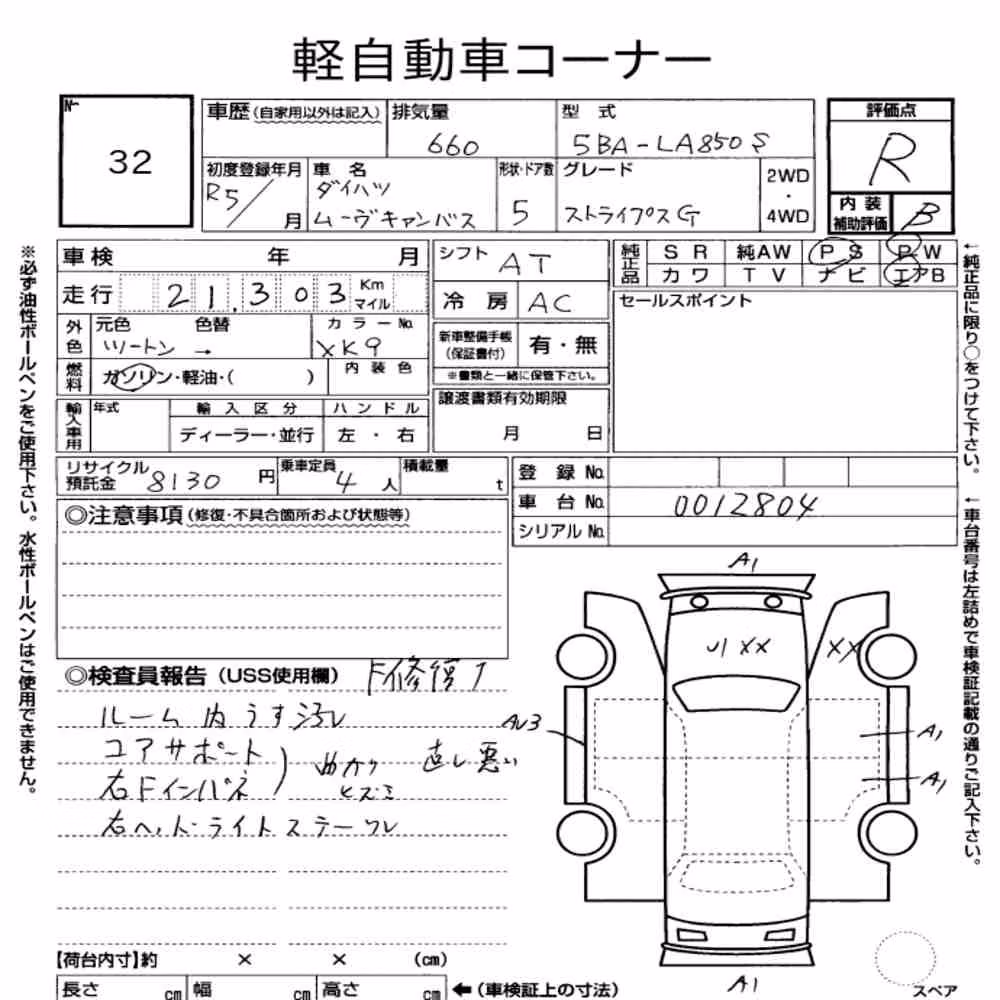 軽自動車コーナー
No.
32
車歴(自家用以外は記入) 排気量 型 式 評価点
660 5BA-LA850S R
初度登録年月 車 名 形状・ドア数 グレード 2WD
R5/ 月 ダイハツ ・
ムーヴキャンバス 5 ストライプス G 4WD
内 装
補助評価 B
※必ず油性ボールペンをご使用下さい。水性ボールペンはご使用できません。
車検 年 月 シフト AT 純正品 S R 純AW P S P W
カワ T V ナビ エアB
走行 21,303 Km
マイル
冷房 AC セールスポイント
外色 元色 色替 カラーNo.
ツートン → XK9
新車整備手帳
(保証書付) 有・無
※書類と一緒に保管下さい。
燃料 ガソリン・軽油・( ) 内装色
輸入車用 年式 輸入区分 ハンドル
ディーラー・並行 左・右
譲渡書類有効期限
月 日
←純正品に限り○をつけて下さい。
リサイクル
預託金 8130 円 乗車定員 4 人 積載量 t
登録 No.
車台 No. 0012804
シリアル No.
◎注意事項(修復・不具合箇所および状態等)
←車台番号は左詰めで車検証記載の通りご記入下さい。
◎検査員報告(USS使用欄) F修復
ルーム内うす汚れ
コアサポート
右Fインパネ
曲がり
ヒズミ
直し悪い
右ヘッドライトステーワレ
A1
XX
XX
AU3
A1
A1
A1
スペア
【荷台内寸】約 × × (cm)
長さ cm 幅 cm 高さ cm ←(車検証上の寸法)